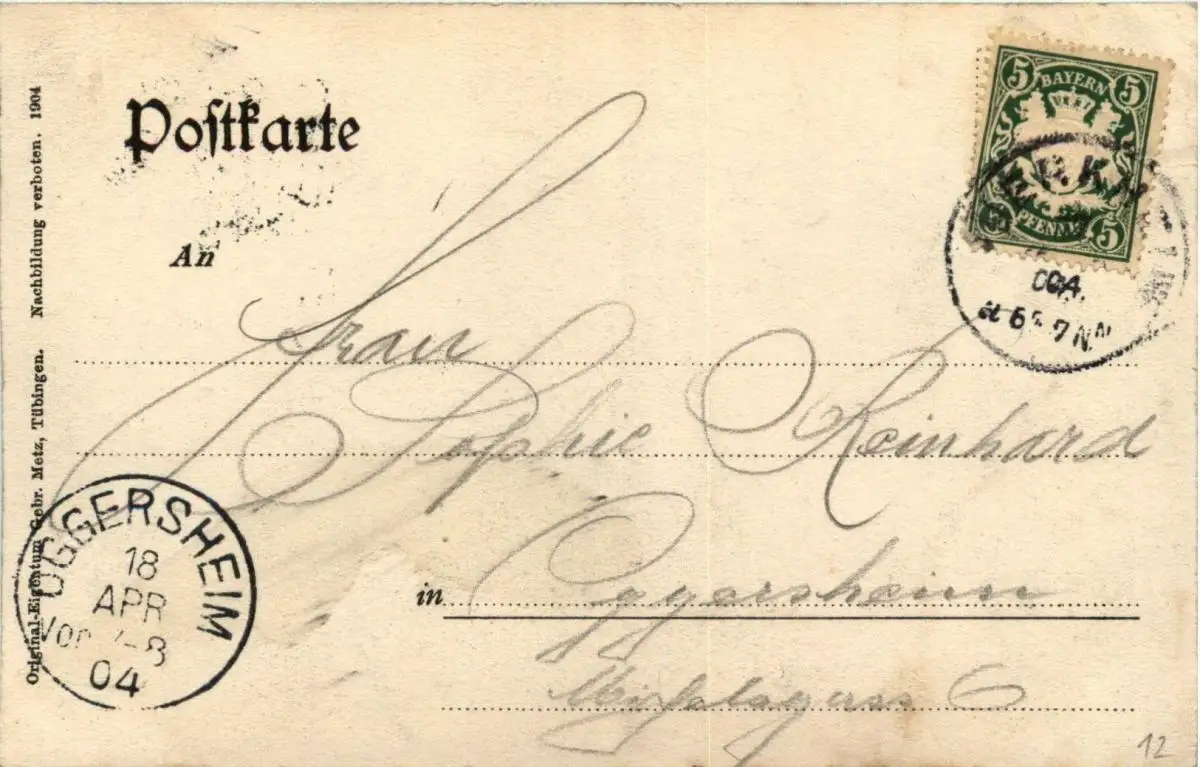 Postkarte
An
Frau
Sophie Reinhard
in Oggersheim
6
5 BAYERN 5
PFENNIG 5
6 7 NM
OGGERSHEIM
18
APR
Vor 7-8
04
Original-Eigentum Gebr. Metz, Tübingen. Nachbildung verboten. 1904
12